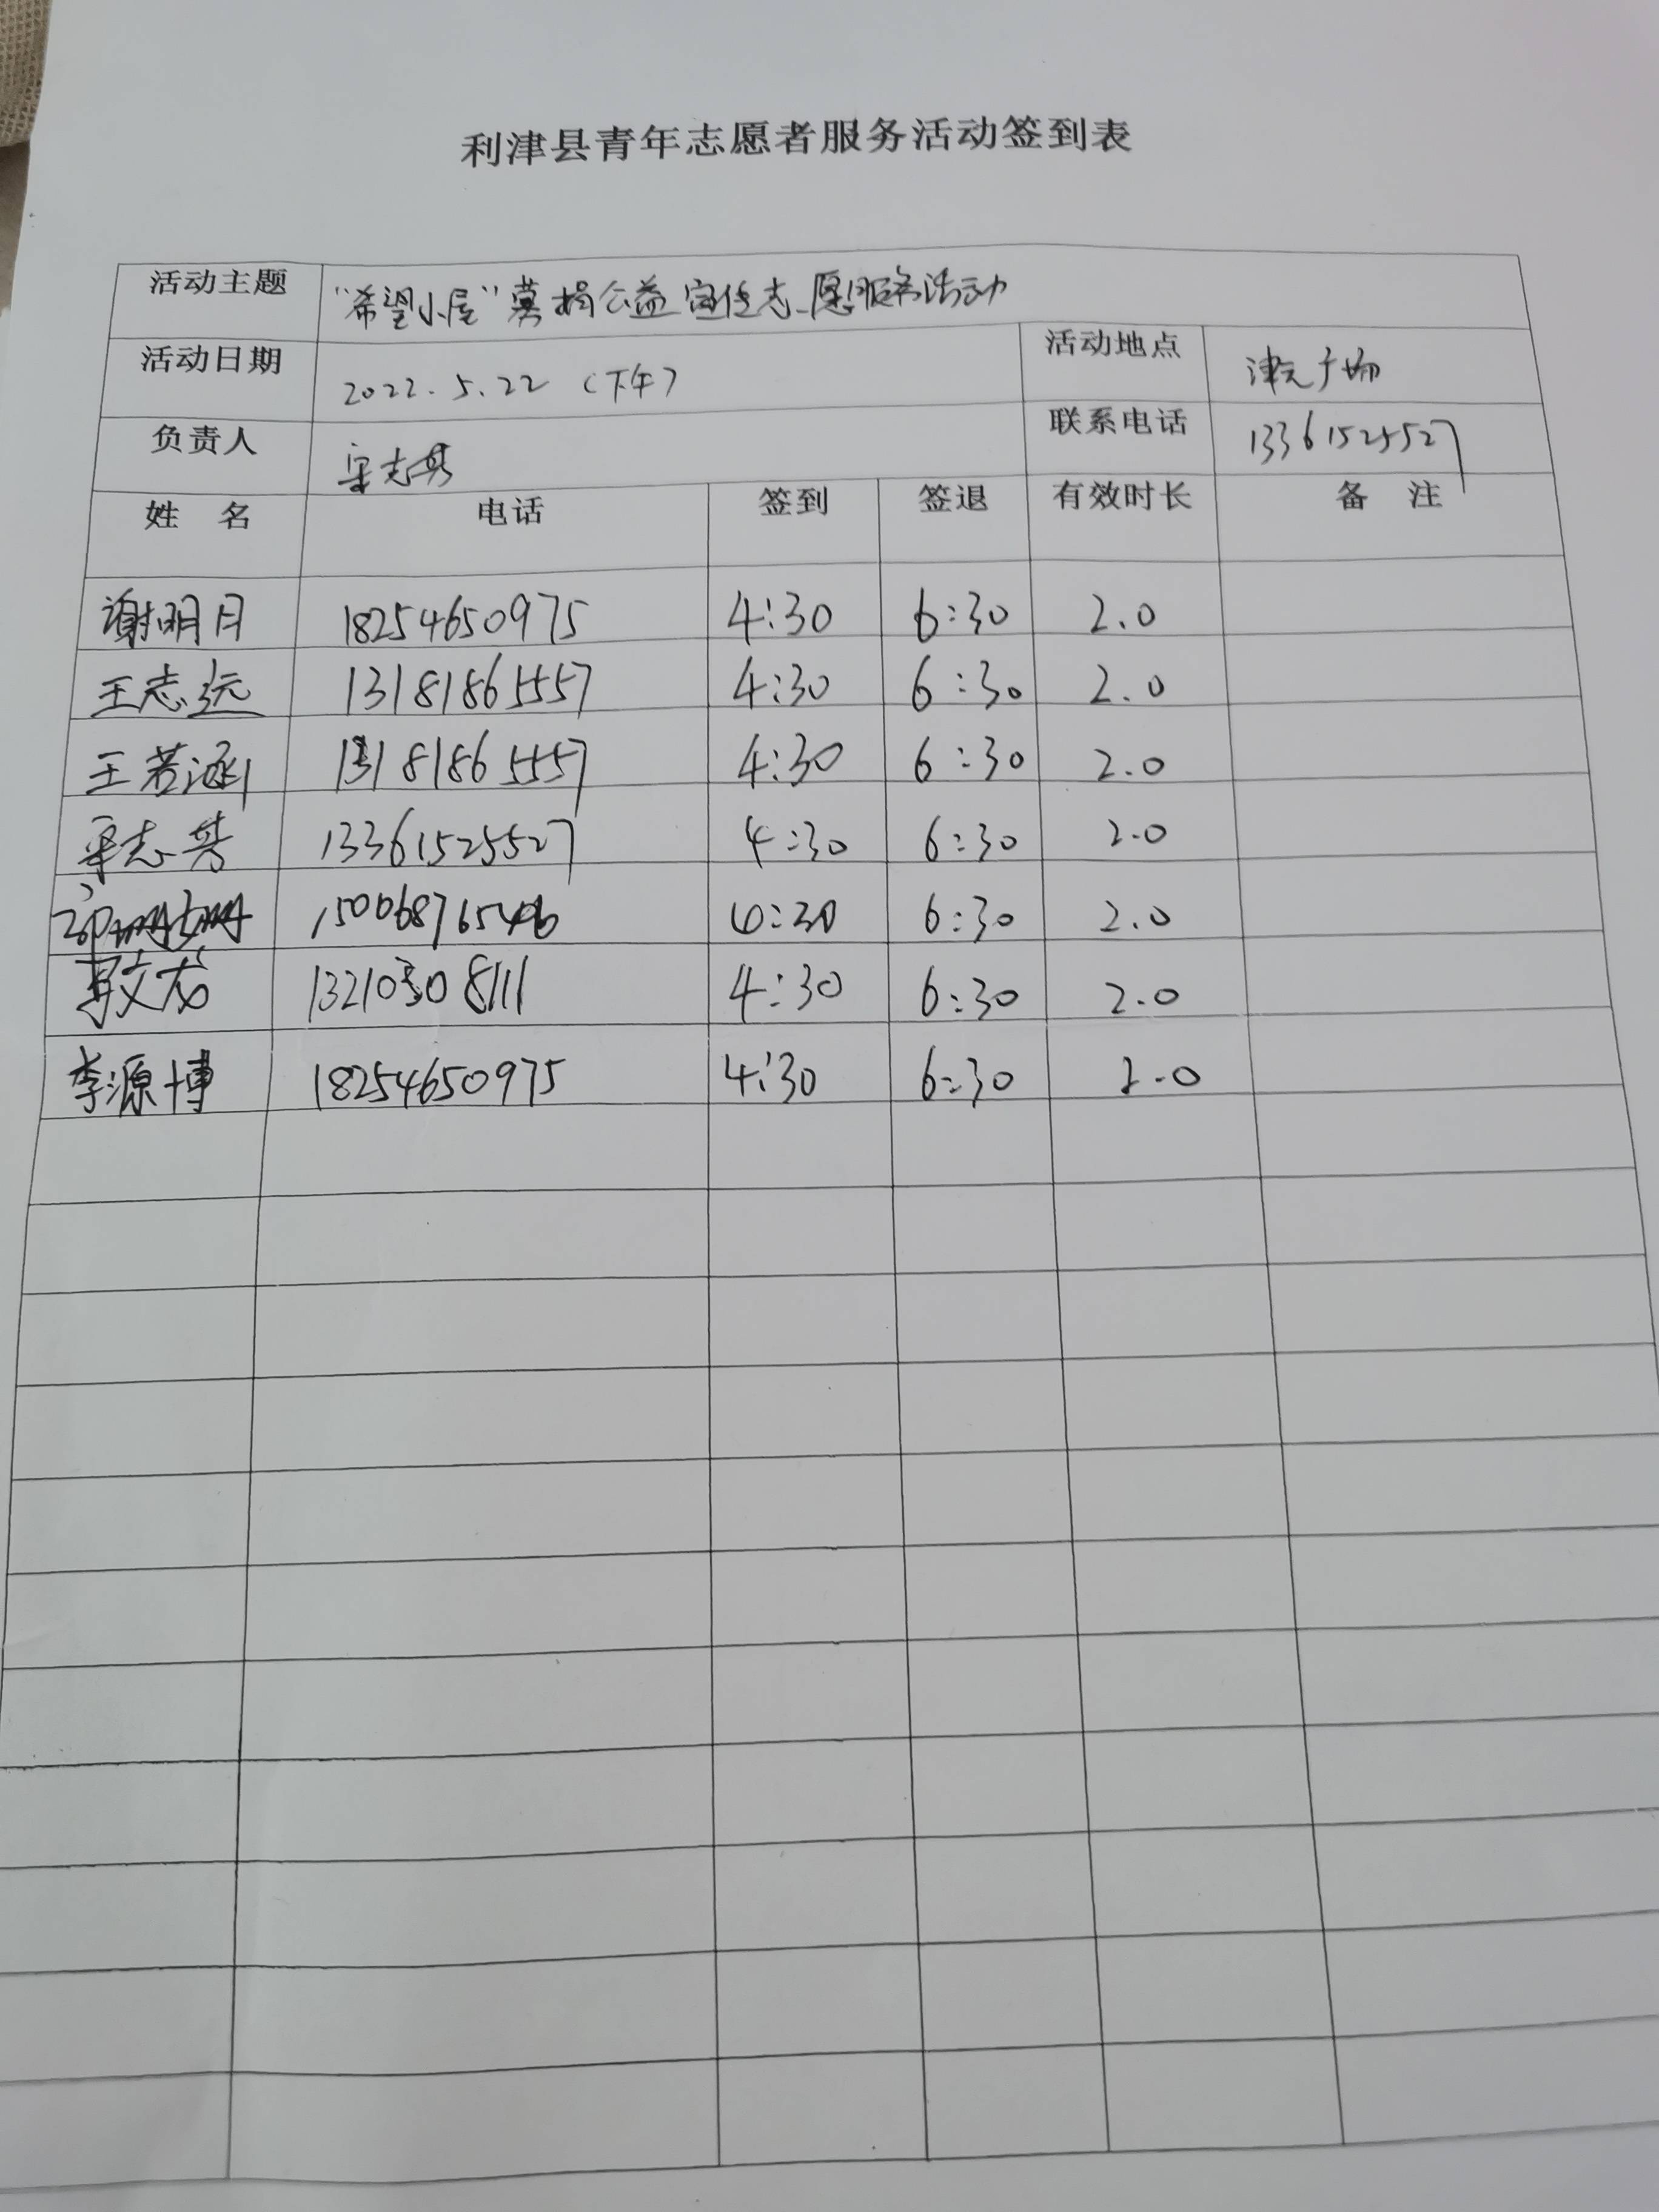 利津县青年志愿者服务活动签到表
活动主题 "希望小屋"募捐公益宣传志愿服务活动
活动日期 2022.5.22（下午） 活动地点 津元广场
负责人 志 联系电话 13361525527
姓 名 电话 签到 签退 有效时长 备 注
谢明月 18254650975 4:30 6:30 2.0
王志远 13181865557 4:30 6:30 2.0
王若涵 13181865557 4:30 6:30 2.0
志 13361525527 4:30 6:30 2.0
6:30 2.0
文龙 4:30 6:30 2.0
李源博 18254650975 4:30 6:30 2.0